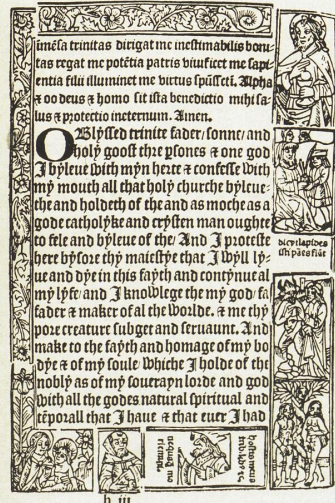 īmēsa trinitas dirigat me inestimabilis boni-
tas regat me potētia patris viuificet me sapi-
entia filii illuminet me virtus spūsscti. Alpha
⁊ oo deus ⁊ homo sit ista benedictio mihi sa-
lus ⁊ protectio ineternum. Amen.
O Blyssed trinite fader/ sonne/ and
holy goost thre psones ⁊ one god
I byleue with myn herte ⁊ confesse with
my mouth all that holy churche byleue-
the and holdeth of the and as moche as a
gode catholyke and crysten man oughte
to fele and byleue of the/ And I proteste
here byfore thy maiestye that I wyll ly-
ue and dye in this fayth and contynue al
my lyfe/ and I knowlege the my god/ fa
fader ⁊ maker of al the worlde. ⁊ me thy
pore creature subget and seruaunt. And
make to the fayth and homage of my bo
dye ⁊ of my soule/ whiche I holde of the
nobly as of my souerayn lorde and god
with all the godes natural spiritual and
tēporall that I haue ⁊ that euer I had
dic vt lapides
isti panes fiāt
h iii